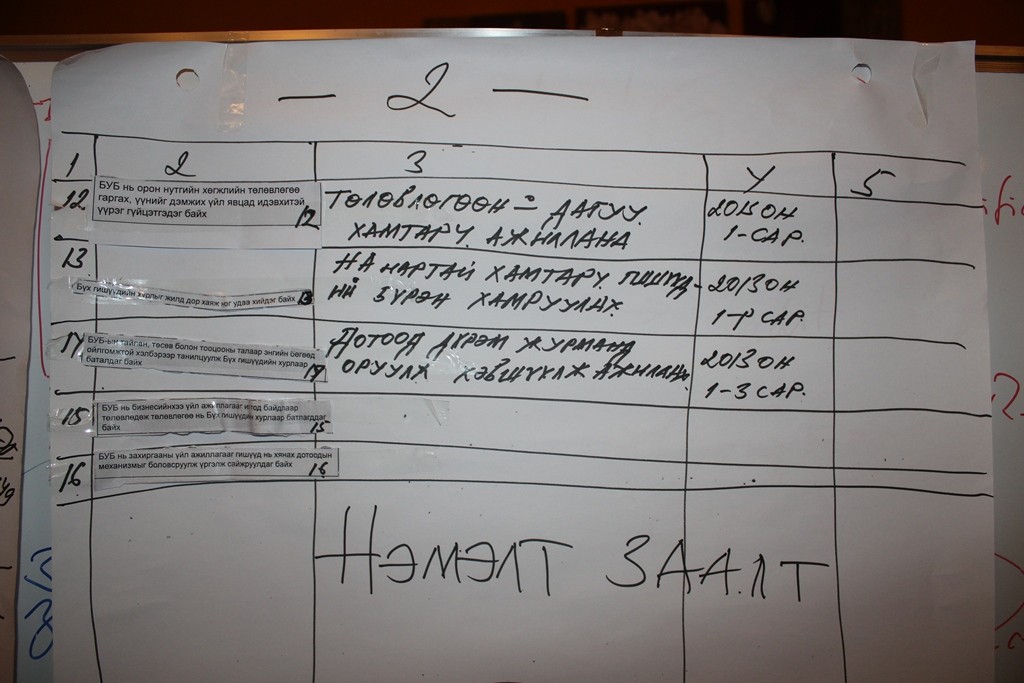 — 2 —
1 2 3 4 5
12 БУБ нь орон нутгийн хөгжлийн төлөвлөгөө
гаргах, үүнийг дэмжих үйл явцад идэвхитэй
үүрэг гүйцэтгэдэг байх 12
ТӨЛӨВЛӨГӨӨН ДАГУУ
ХАМТАРЧ АЖИЛЛАНА
2015 ОН
1-САР.
13
Бүх гишүүдийн хурлыг жилд дор хаяж нэг удаа хийдэг байх 13
НА НАРТАЙ ХАМТАРЧ
БҮРЭН ХАМРУУЛАХ
2013 ОН
САР.
14 БУБ-ын тайлан, төсөв болон тооцооны талаар энгийн бөгөөд
ойлгомжтой хэлбэрээр танилцуулж Бүх гишүүдийн хурлаар
баталдаг байх 14
ДОТООД ДҮРЭМ ЖУРМАНД
ОРУУЛЖ ХЭВШҮҮЛЖ АЖИЛЛАНА
2013 ОН
1-3 САР.
15 БУБ нь бизнесийнхээ үйл ажиллагааг илод байдлаар
төлөвлөдөж төлөвлөгөө нь Бүх гишүүдин хурлаар батлагддаг
байх 15
16 БУБ нь захиргааны үйл ажиллагааг гишүүд нь хянах дотоодын
механизмыг боловсруулж үргэлж сайжруулдаг байх 16
НЭМЭЛТ ЗААЛТ